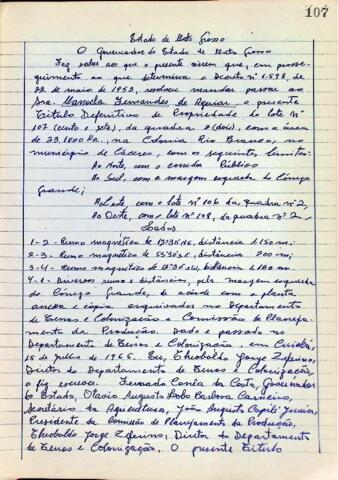 107
Estado de Mato Grosso
O Governador do Estado de Mato Grosso
Faz saber aos que o presente virem que, em prosse-
guimento ao que determina o Decreto nº 1.598, de
22 de maio de 1953, resolve mandar passar ao
Sra. Manoela Fernandes de Aguiar, o presente
Título Definitivo de Propriedade do lote Nº
107 (cento e sete), da quadra 2 (dois), com a área
de 23,1000 Ha, na Colonia Rio Branco, no
município de Cáceres, com os seguintes limites:
Ao Norte, com o corredor Público
Ao Sul, com a margem esquerda do Córrego
Grande;
A Leste, com o lote nº 106 da quadra nº 2,
Ao Oeste, com o lote nº 108, da quadra nº 2 -
Lados
1-2- Rumo magnético de distância 1.150 m;
2-3- Rumo magnético de distância 200 m;
3-4- Rumo magnético de distância 1.160 m
4-1- Diversos rumos e distâncias, pela margem esquerda
do Córrego Grande, de acôrdo com a planta
anexa e cópia arquivados no Departamento
de Terras e Colonização e Comissão de Planeja-
mento da Produção. Dado e passado no
Departamento de Terras e Colonização, em Cuiabá,
15 de Julho de 1965. Eu, Theobaldo Jorge Zeferino,
Diretor do Departamento de Terras e Colonização,
o fiz escrever. Fernando Corrêa da Costa, Governador
do Estado, Otavio Augusto Lobo Barbosa Carneiro,
Secretário da Agricultura, João Augusto Capilé Junior,
Presidente da Comissão de Planejamento da Produção,
Theobaldo Jorge Zeferino, Diretor do Departamento
de Terras e Colonização. O presente Título